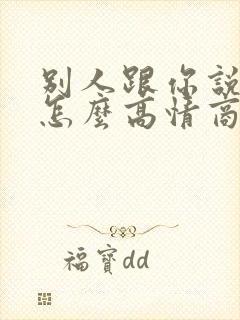 別人跟你說
怎麼高情商
福寶dd